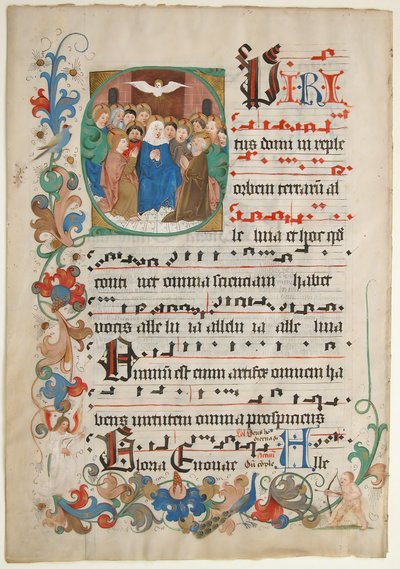 SPIRI
tus domi in reple
orbem terrarū al
le luia et hoc qd
conti net omnia scientiam habet
vocis alle lu ia allelu ia alle luia
Omniū est enim artifex omnem ha
bens virtutem omnia prospiciens
Gloria Euouae Alle